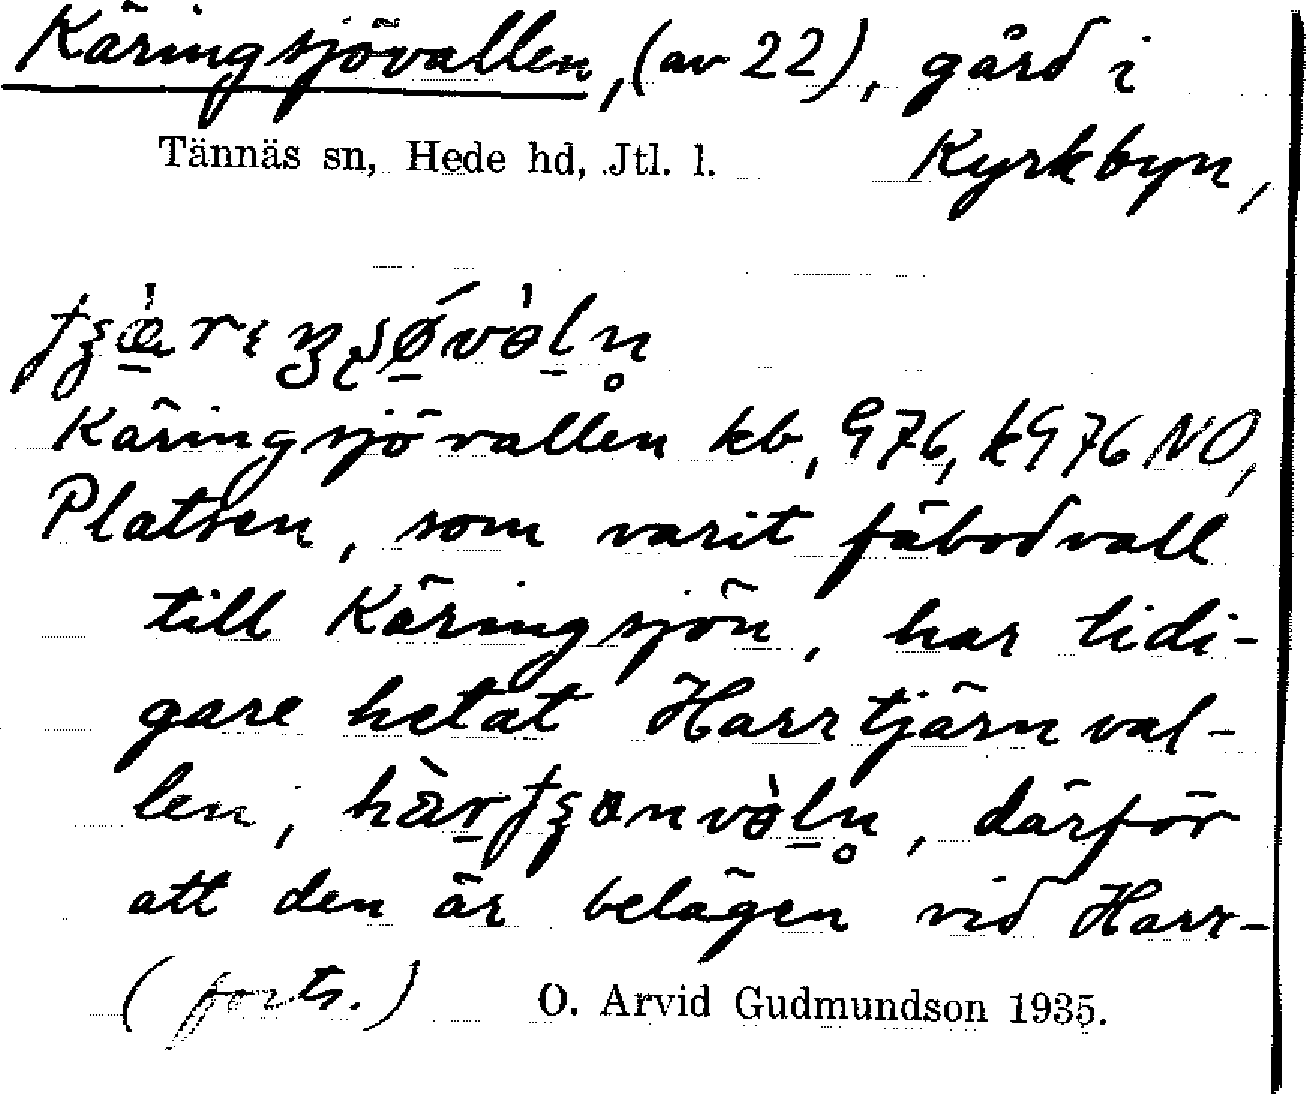 Käringsjövallen, (av 22), gård i
Tännäs sn, Hede hd, Jtl. l. Kyrkbyn,
Käringsjövallen kb, 976, k976 NO,
Platsen, som varit fäbodvall
till Käringsjön, har tidi-
gare hetat Harrtjärnval-
len, därför
att den är belägen vid Harr-
(forts.) O. Arvid Gudmundson 1935.